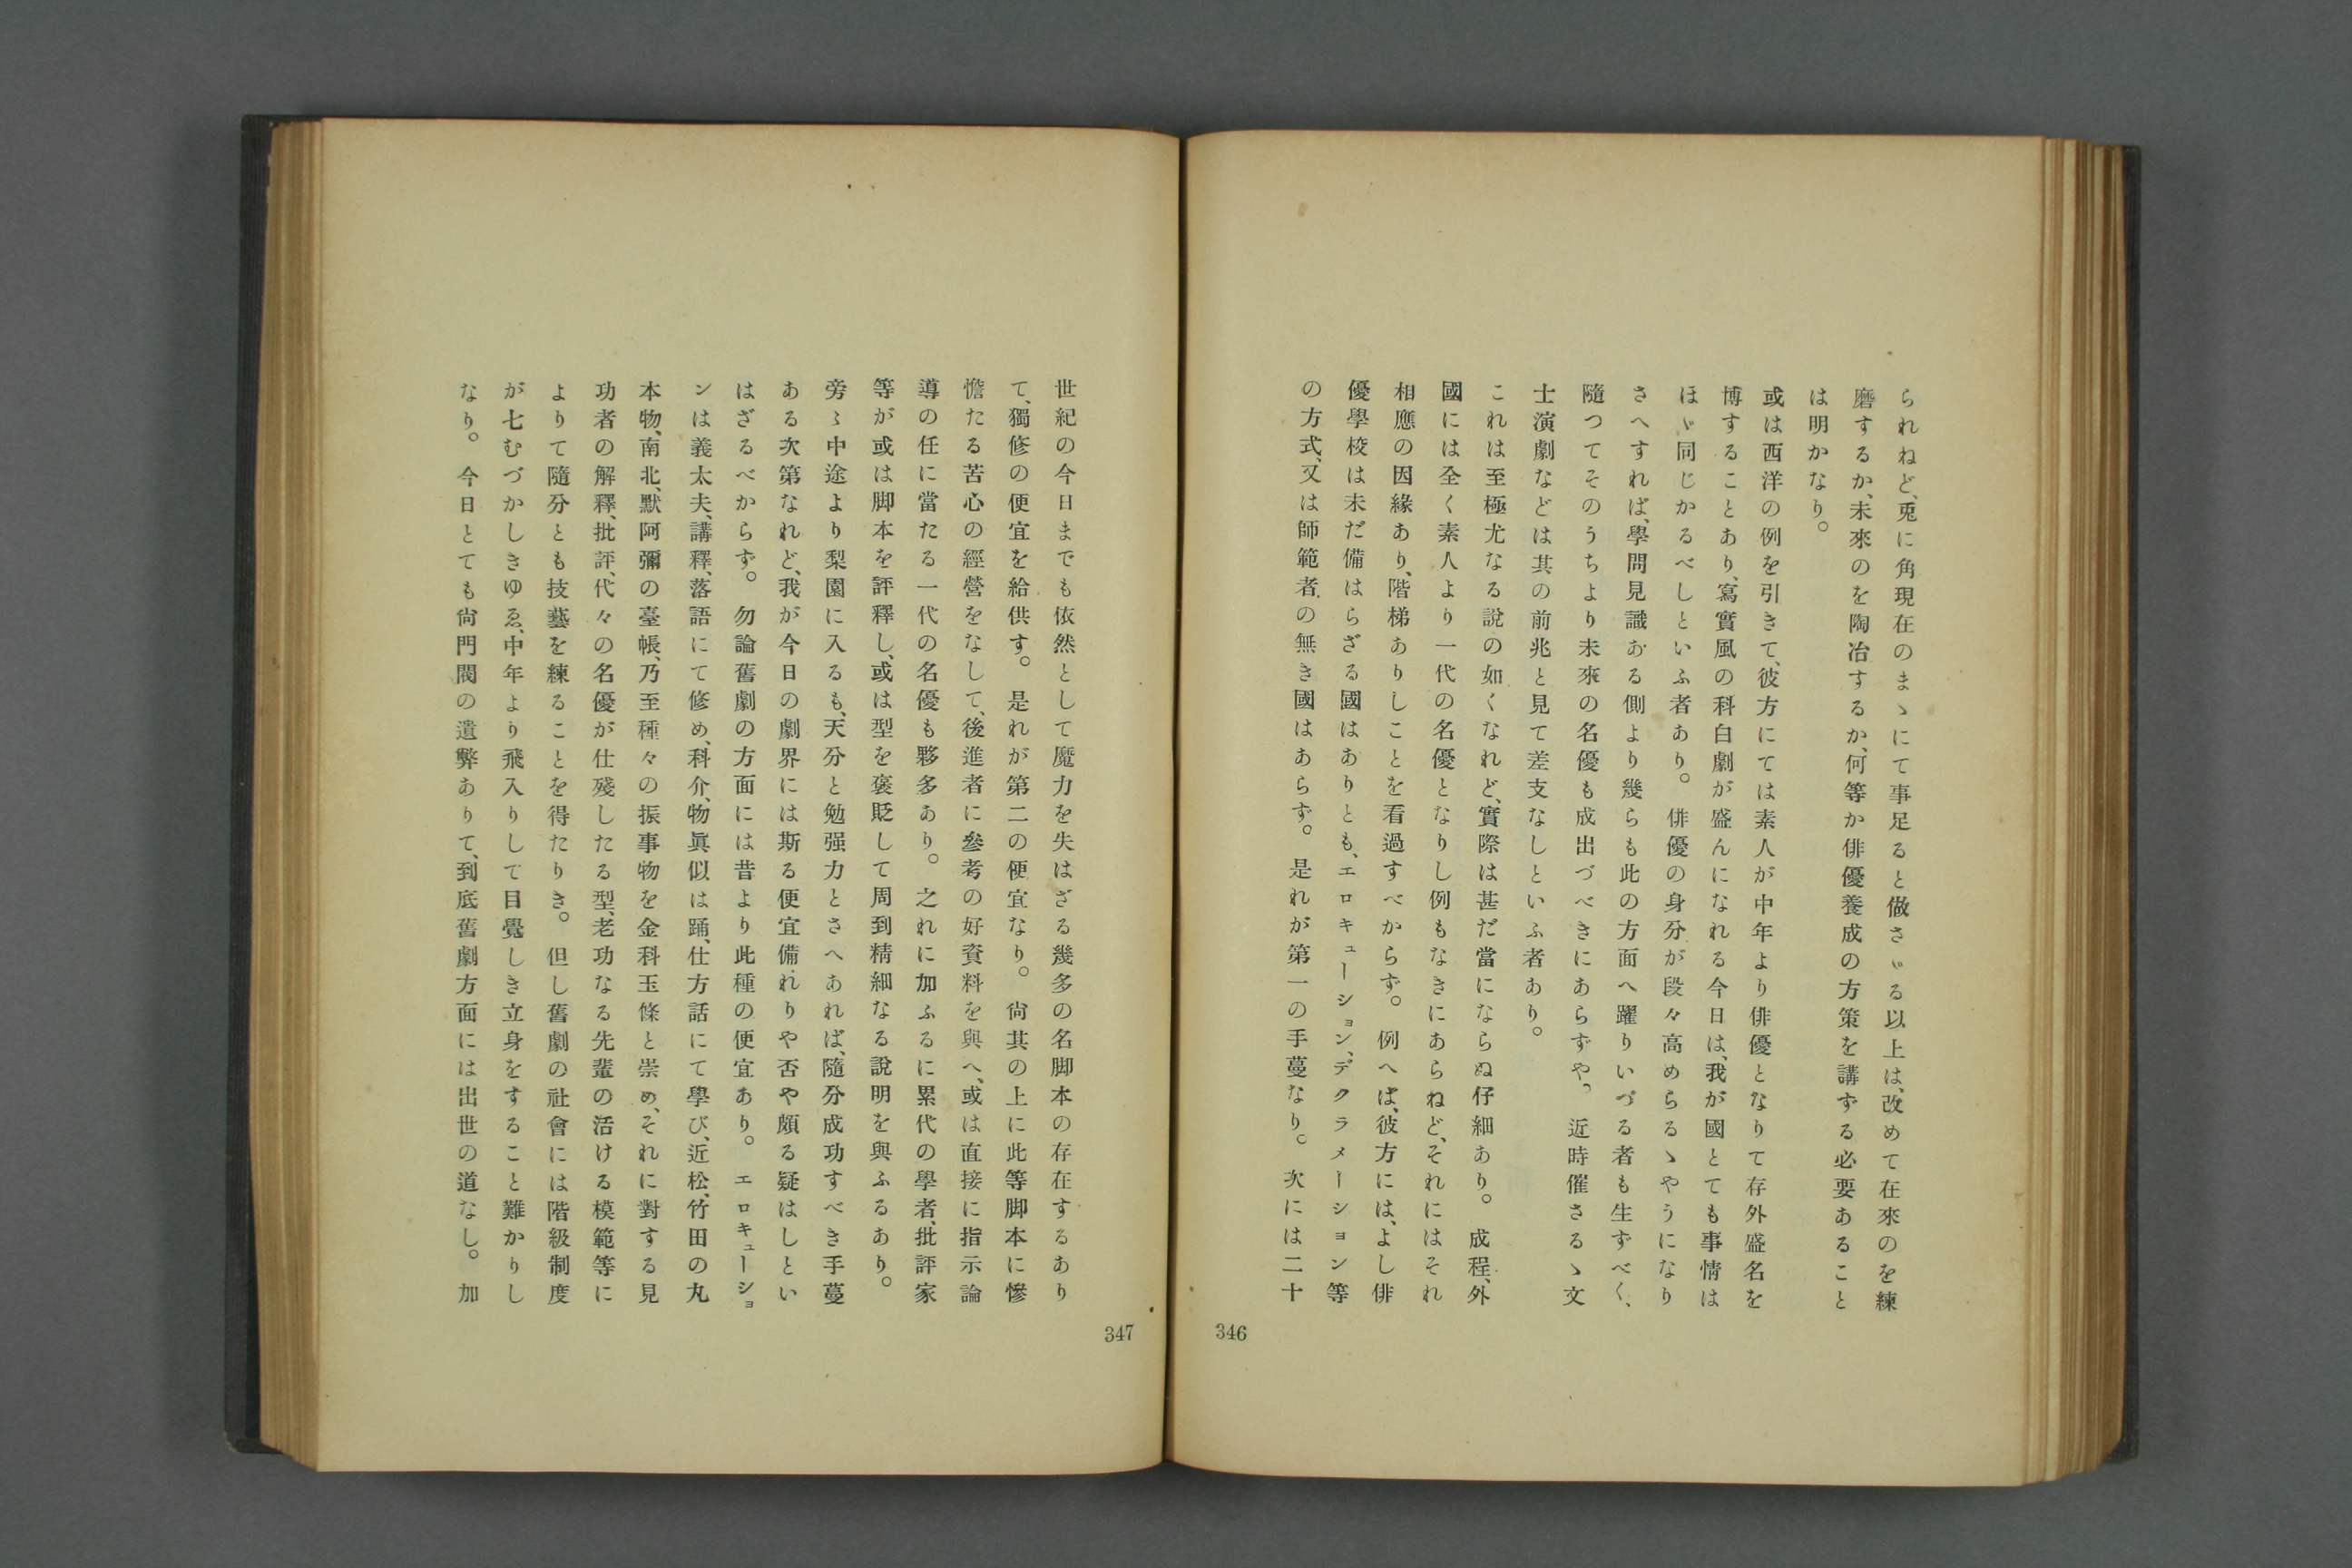 られねど、兎に角現在のまゝにて事足ると做さゞる以上は、改めて在來のを練
磨するか、未來のを陶冶するか、何等か俳優養成の方策を講ずる必要あること
は明かなり。
或は西洋の例を引きて、彼方にては素人が中年より俳優となりて存外盛名を
博することあり、寫實風の科白劇が盛んになれる今日は、我が國とても事情は
ほゞ同じかるべしといふ者あり。俳優の身分が段々高めらるゝやうになり
さへすれば、學問見識ある側より幾らも此の方面へ躍りいづる者も生ずべく、
隨つてそのうちより未來の名優も成出づべきにあらずや。近時催さるゝ文
士演劇などは其の前兆と見て差支なしといふ者あり。
これは至極尤なる說の如くなれど、實際は甚だ當にならぬ仔細あり。成程、外
國には全く素人より一代の名優となりし例もなきにあらねど、それにはそれ
相應の因緣あり、階梯ありしことを看過すべからず。例へば、彼方には、よし俳
優學校は未だ備はらざる國はありとも、エロキューション、デクラメーション等
の方式、又は師範者の無き國はあらず。是れが第一の手蔓なり。次には二十
346
世紀の今日までも依然として魔力を失はざる幾多の名脚本の存在するあり
て、獨修の便宜を給供す。是れが第二の便宜なり。尙其の上に此等脚本に慘
憺たる苦心の經營をなして、後進者に參考の好資料を與へ、或は直接に指示論
導の任に當たる一代の名優も夥多あり。之れに加ふるに累代の學者、批評家
等が或は脚本を評釋し、或は型を褒貶して周到精細なる說明を與ふるあり。
旁〻中途より梨園に入るも、天分と勉强力とさへあれば、隨分成功すべき手蔓
ある次第なれど、我が今日の劇界には斯る便宜備れりや否や頗る疑はしとい
はざるべからず。勿論舊劇の方面には昔より此種の便宜あり。エロキューショ
ンは義太夫、講釋、落語にて修め、科介、物眞似は踊、仕方話にて學び、近松、竹田の丸
本物、南北、默阿彌の臺帳、乃至種々の振事物を金科玉條と崇め、それに對する見
功者の解釋、批評、代々の名優が仕殘したる型、老功なる先輩の活ける模範等に
よりて隨分とも技藝を練ることを得たりき。但し舊劇の社會には階級制度
が七むづかしきゆゑ、中年より飛入りして目覺しき立身をすること難かりし
なり。今日とても尙門閥の遺弊ありて、到底舊劇方面には出世の道なし。加
347